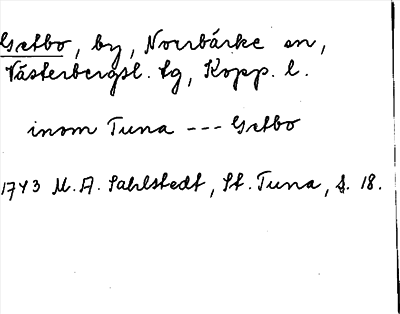 Getbo, by, Norrbärke sn,
Västerbergsl. tg, Kopp. l.
inom Tuna --- Getbo
1743 M. A. Sahlstedt, St. Tuna, s. 18.